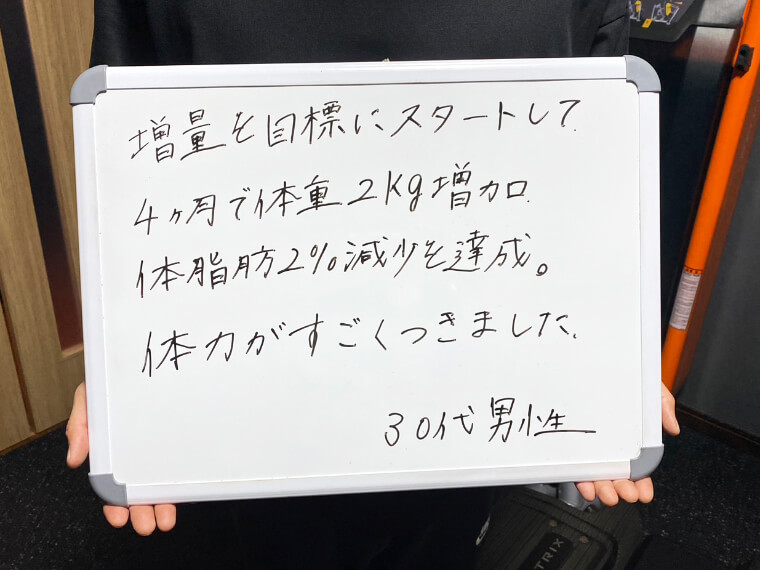 増量を目標にスタートして.
4ヶ月で体重2kg増加.
体脂肪2%減少を達成。
体力がすごくつきました.
30代男性
TRIX